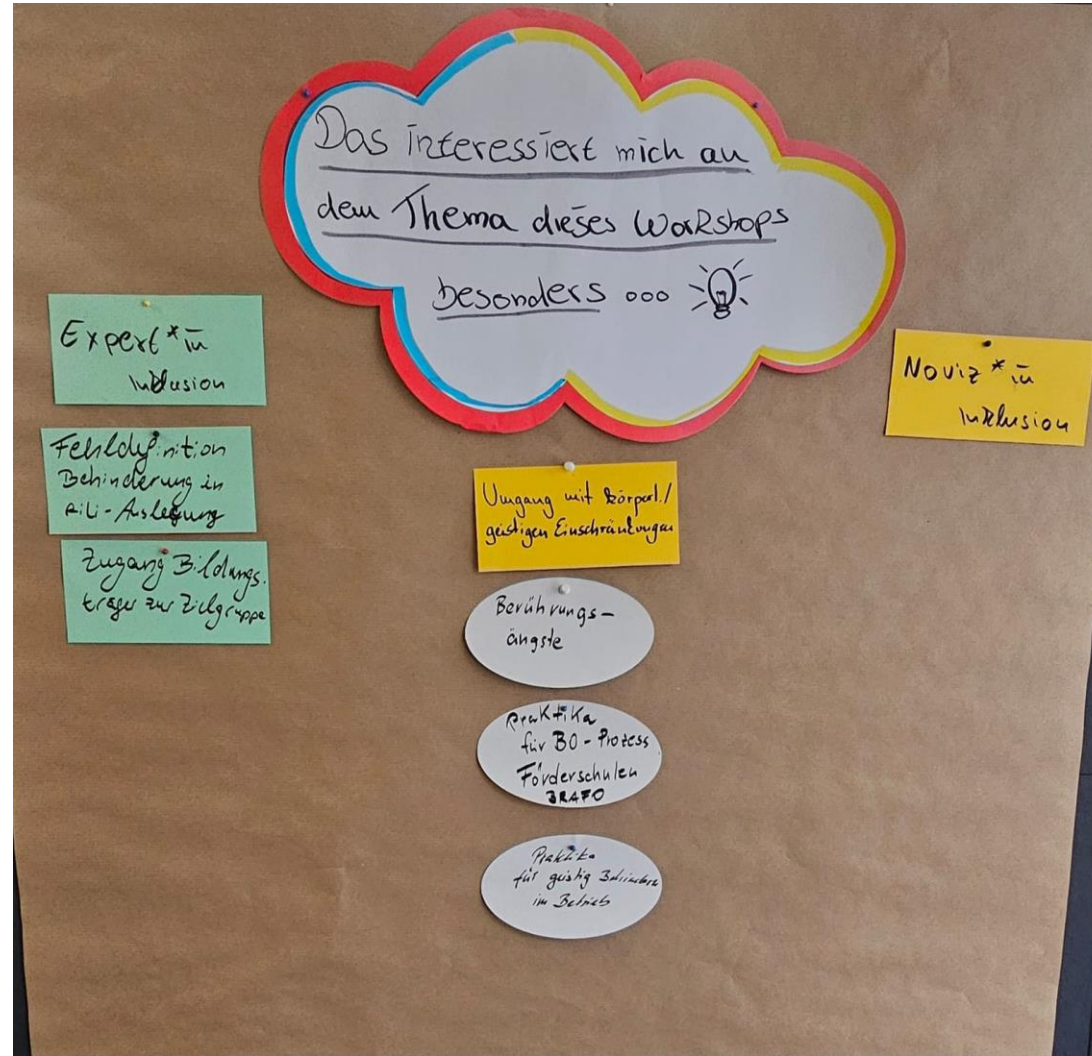 Das interessiert mich an
dem Thema dieses Workshops
besonders ...
Expert*in
Inklusion
Noviz*in
Inklusion
Fehldefinition
Behinderung in
RiLi-Auslegung
Zugang Bildungs.
träger zur Zielgruppe
Umgang mit körperl./
geistigen Einschränkungen
Berührungs-
ängste
Praktika
für BO-Prozess
Förderschulen
BRAFO
Praktika
für geistig Behinderte
im Betrieb